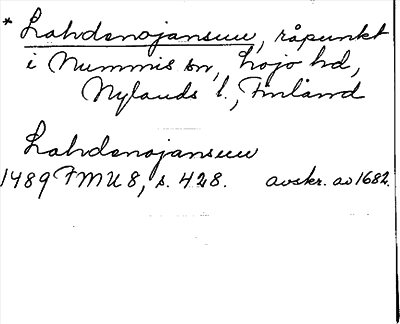 * Lahdenojansuu, råpunkt
i Nummis sn, Lojo hd,
Nylands l., Finland
Lahdenojansuu
1489 FMU 8, s. 428. avskr. av 1682.